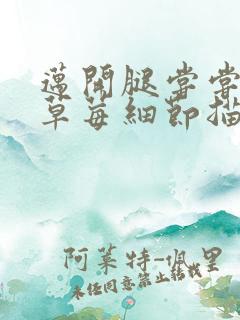 邁開腿嘗嘗
草莓細節描
阿萊特-佩里
未经同意禁止转载